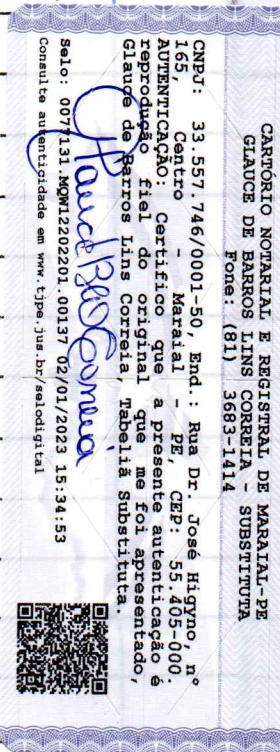 CARTÓRIO NOTARIAL E REGISTRAL DE MARAIAL-PE
GLAUCE DE BARROS LINS CORREIA - SUBSTITUTA
Fone: (81) 3683-1414
CNPJ: 33.557.746/0001-50, End.: Rua Dr. José Higyno, nº
165, Centro - Maraial - PE, CEP: 55.405-000.
AUTENTICAÇÃO: Certifico que a presente autenticação é
reprodução fiel do original que me foi apresentado,
Glauce de Barros Lins Correia, Tabeliã Substituta.
Selo: 0077131.MQW12202201.00137 02/01/2023 15:34:53
Consulte autenticidade em www.tjpe.jus.br/selodigital